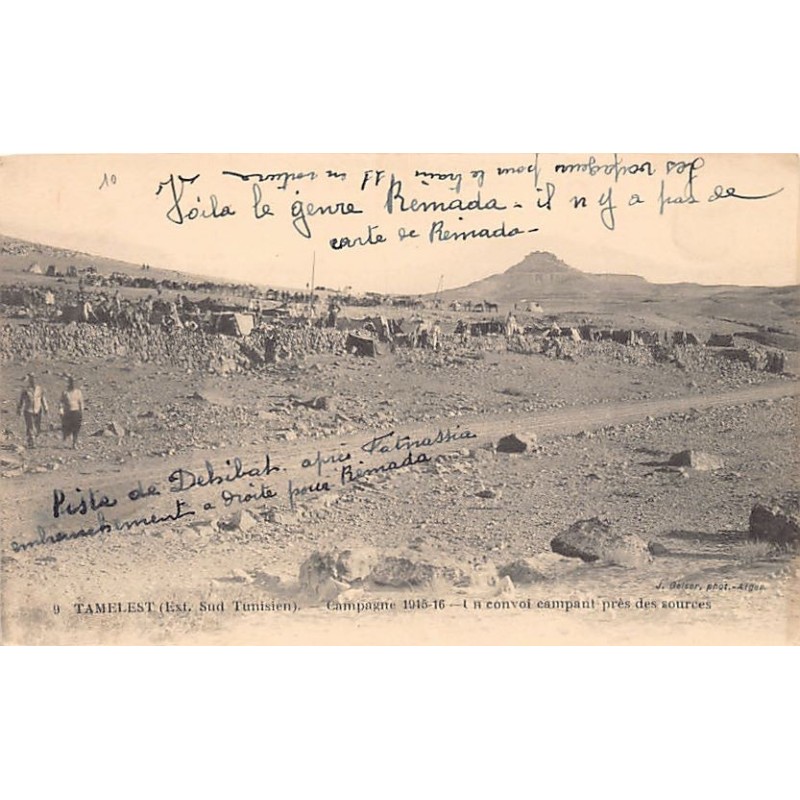 10
Les voyageurs pour le train 11 en voiture
Voila le genre Remada - il n y a pas de
carte de Remada -
Piste de Dehibat. après Fatnassia
embranchement a droite pour Remada
J. Geiser, phot.-Alger
9 TAMELEST (Ext. Sud Tunisien). - Campagne 1915-16 - Un convoi campant près des sources